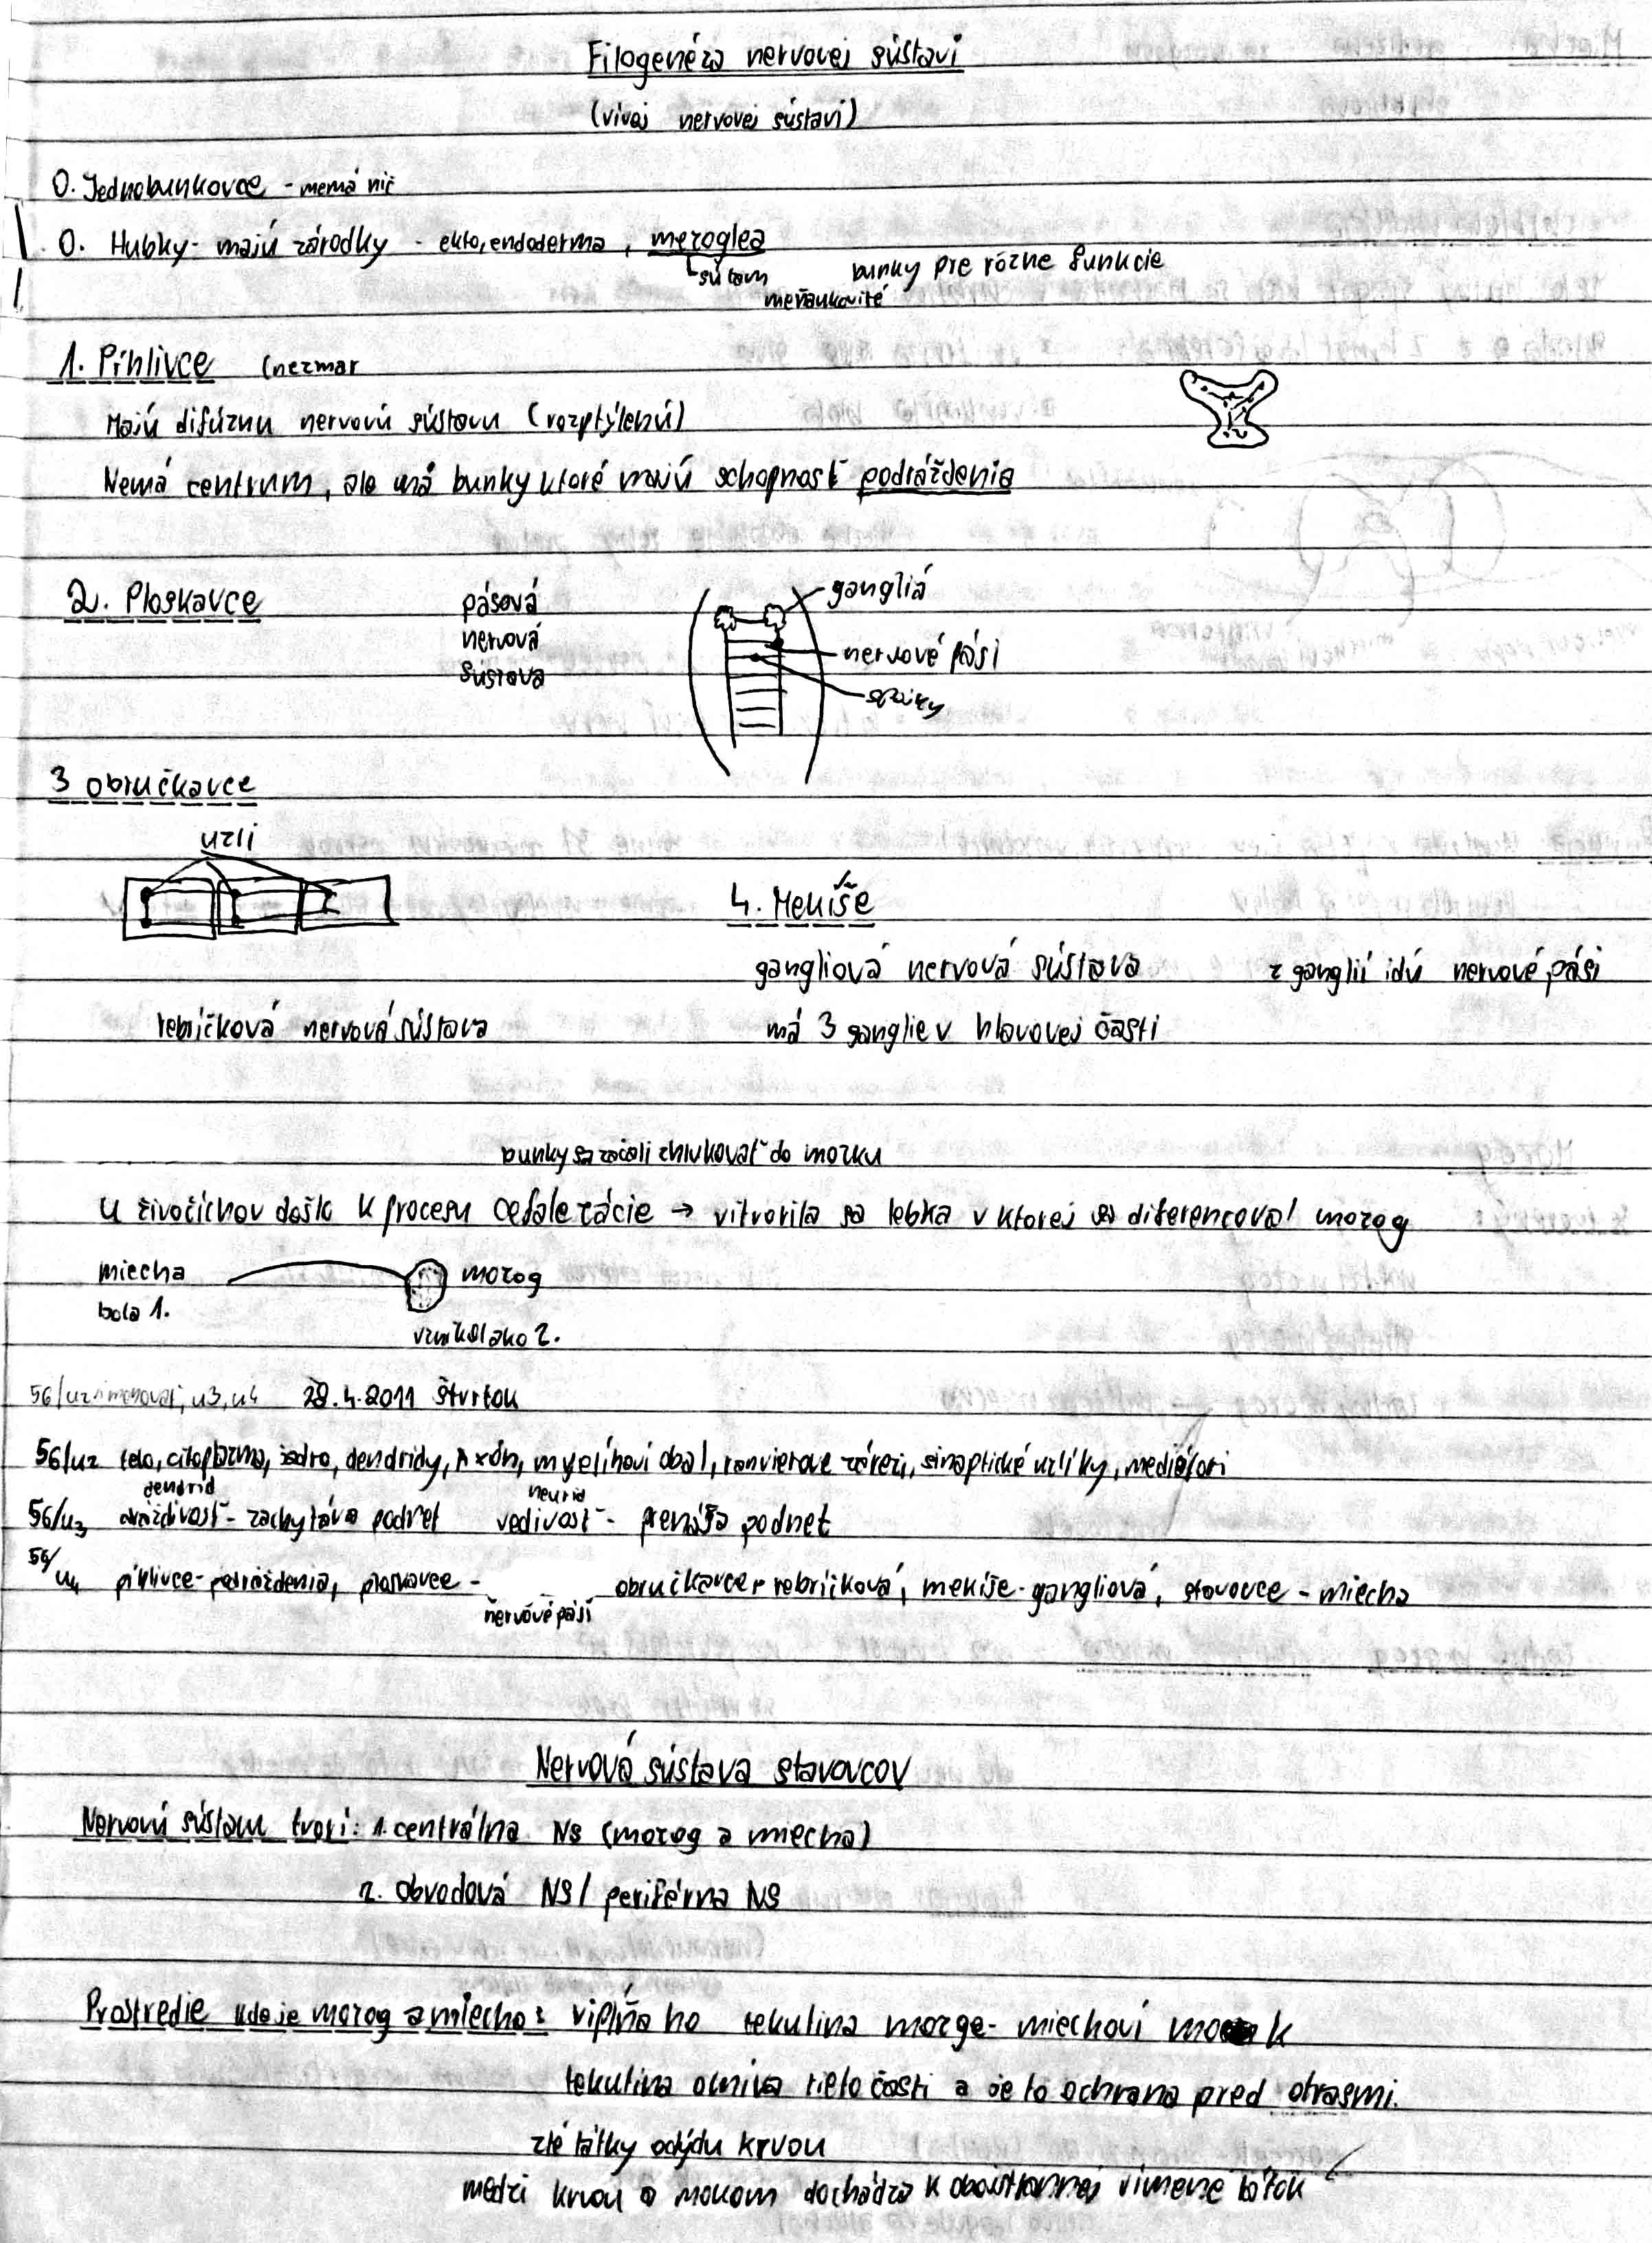 Filogenéza nervovej sústavi
(vívoj nervovej sústavi)
0. Jednobunkovce - nemá nič
0. Hubky - majú zárodky - ekto, endoderma, mezoglea
bunky pre rôzne funkcie
meňavkovité
1. Pŕhlivce (nezmar
Majú difúznu nervovú sústavu (rozptýlenú)
Nemá centrum, ale má bunky ktoré majú schopnosť podráždenia
2. Ploskavce
pásová
nervová
sústava
gangliá
nervové pási
spojky
3 obručkavce
uzli
rebríčková nervová sústava
4. Mekíše
gangliová nervová sústava
z ganglií idú nervové pási
má 3 ganglie v hlavovej časti
bunky sa začali zhlukovať do mozku
U živočíchov došlo k procesu cefalezácie → vitvorila sa lebka v ktorej sa diferencoval mozog
miecha
bola 1.
mozog
vznikol ako 2.
56/ u3, u4 28.4.2011 štvrtok
56/u2 telo, citoplazma, jadro, dendridy, Axón, myelínoví obal, ranvierove zárezi, sinaptické uzlíky, mediátori
dendrid
neurid
56/u3 dráždivosť - zachytáva podnet vodivosť - prenáša podnet
56/u4 pŕhlivce - podráždenia, ploskavce - nervové pási obručkavce - rebríčková, mekíše - gangliová, stavovce - miecha
Nervová sústava stavovcov
Nervovú sústavu tvorí: 1. centrálna NS (mozog a miecha)
2. obvodová NS / periférna NS
Prostredie kde je mozog a miecha: viplňa ho tekutina mozgo-miechoví mok
tekutina omíva tieto časti a je to ochrana pred otrasmi.
zlé látky odídu krvou
medzi krvou a mokom dochádza k obojstrannej vímene látok